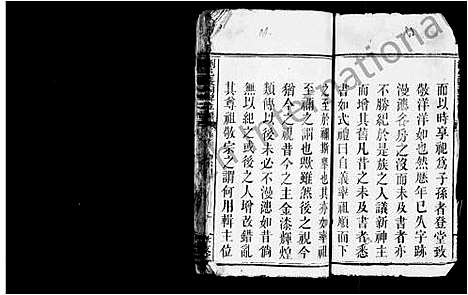 而以時享祀爲子孫者登堂致
敬洋洋如也然厯年已久字跡
漫漶各房之沒而未及書者亦
不勝紀於是族之人議新神主
而增其舊凡昔之未及書者悉
書如式禮曰自義率祖順而下
之至於禰斯擧也其亦如率祖
至禰之謂也歟雖然後之視今
猶今之視昔今之主金漆輝煌
類傳以後未必不漫漶如昔倘
無以紀之或後之人增改錯亂
其尊祖敬宗之謂何用輯主位
International